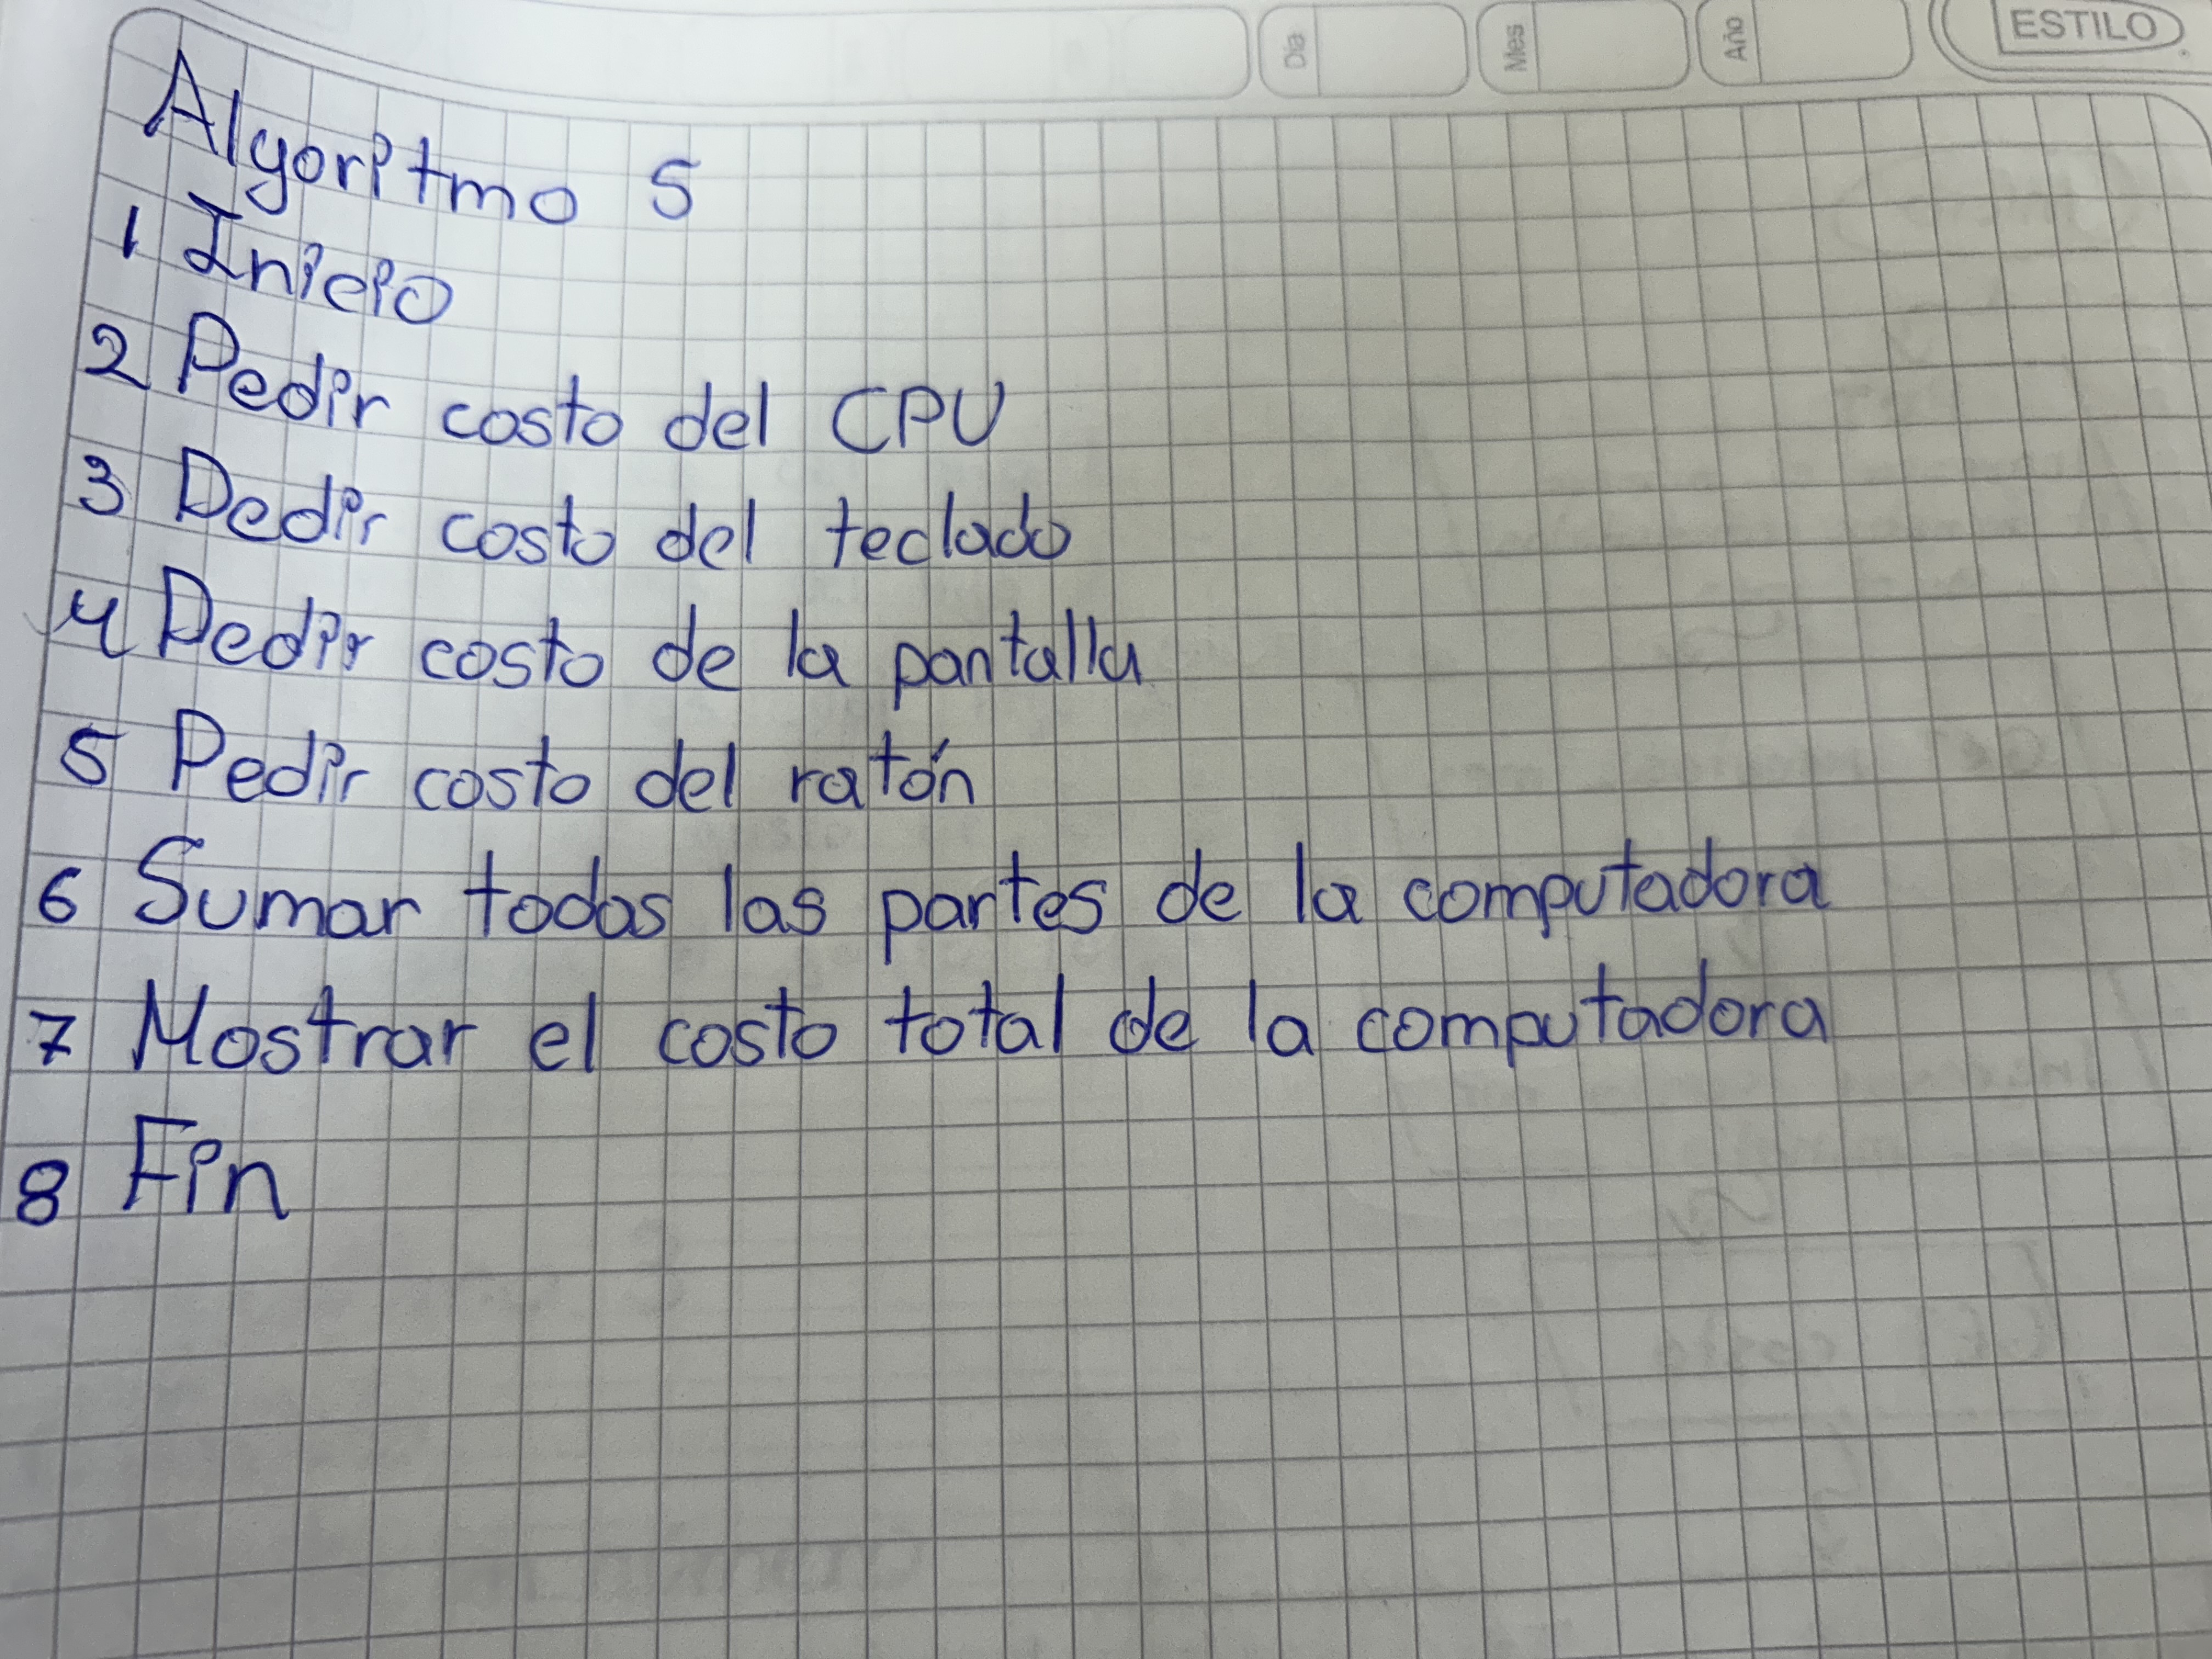 Día
Mes
Año
ESTILO
Algoritmo 5
1 Inicio
2 Pedir costo del CPU
3 Pedir costo del teclado
4 Pedir costo de la pantalla
5 Pedir costo del ratón
6 Sumar todas las partes de la computadora
7 Mostrar el costo total de la computadora
8 Fin